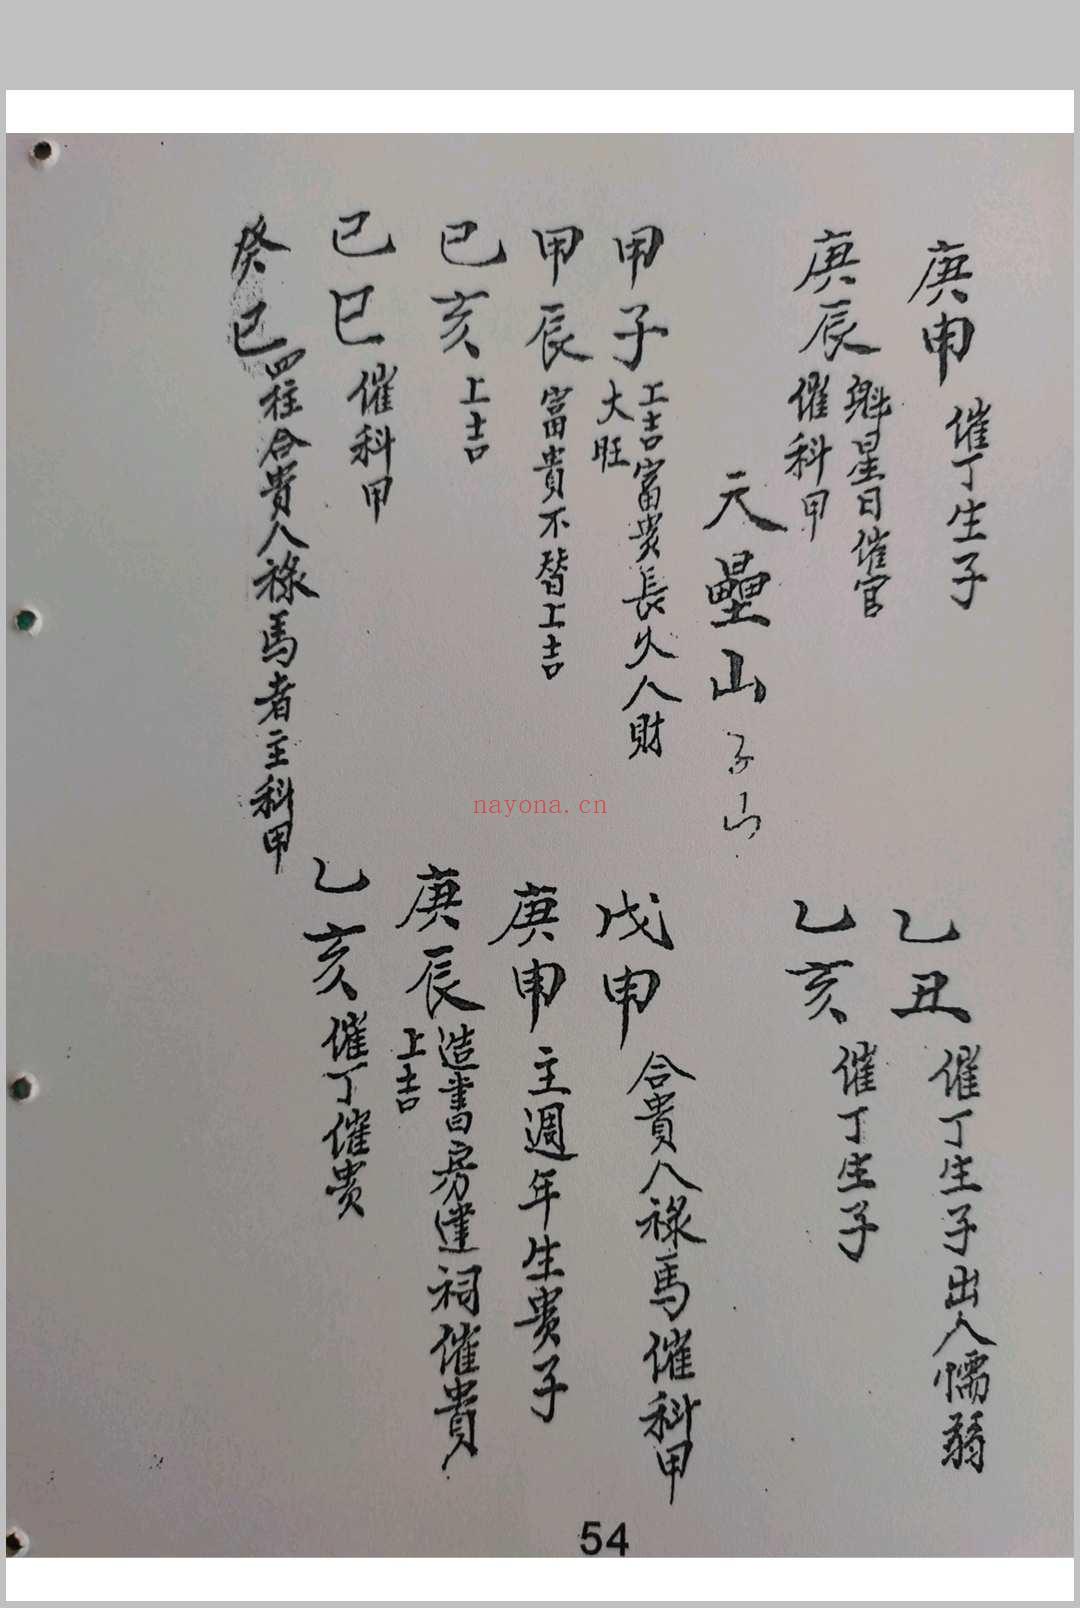 庚申 催丁生子
乙丑 催丁生子出人懦弱
庚辰 魁星日催官
催科甲
乙亥 催丁生子
天壘山 子山
甲子 上吉富贵長久人財
大旺
戊申 合貴人祿馬催科甲
甲辰 富貴不替上吉
庚申 主週年生贵子
己亥 上吉
庚辰 造書房建祠催貴
上吉
己巳 催科甲
乙亥 催丁催贵
癸巳 四柱合貴人祿馬者主科甲
nayona.cn
54